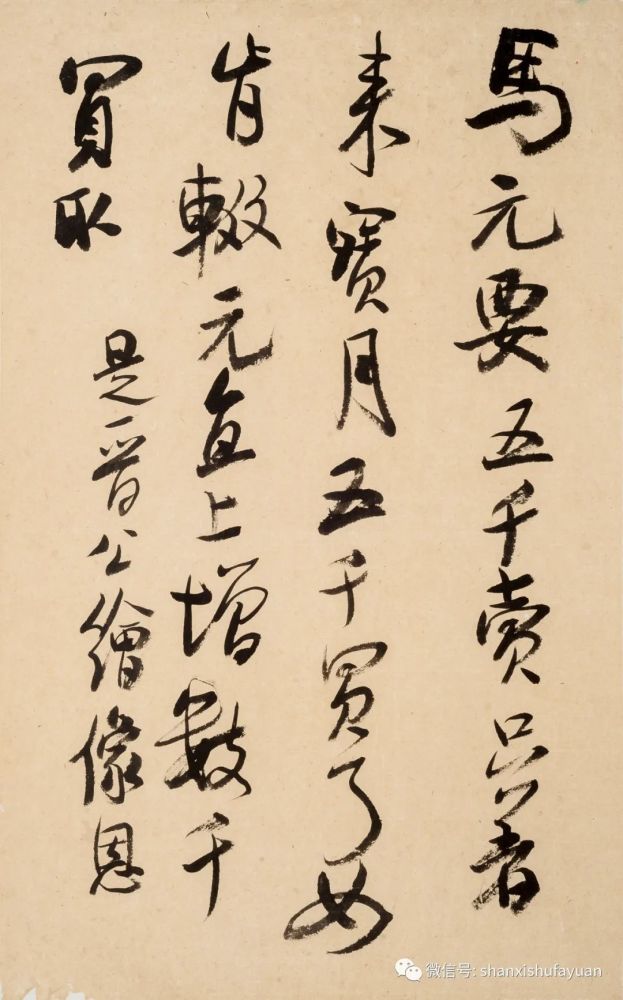 馬元要五千賣只
来寶月五千買了如
肯輟元直上增數千
買取
是晉公繪像恩
微信号: shanxishufayuan